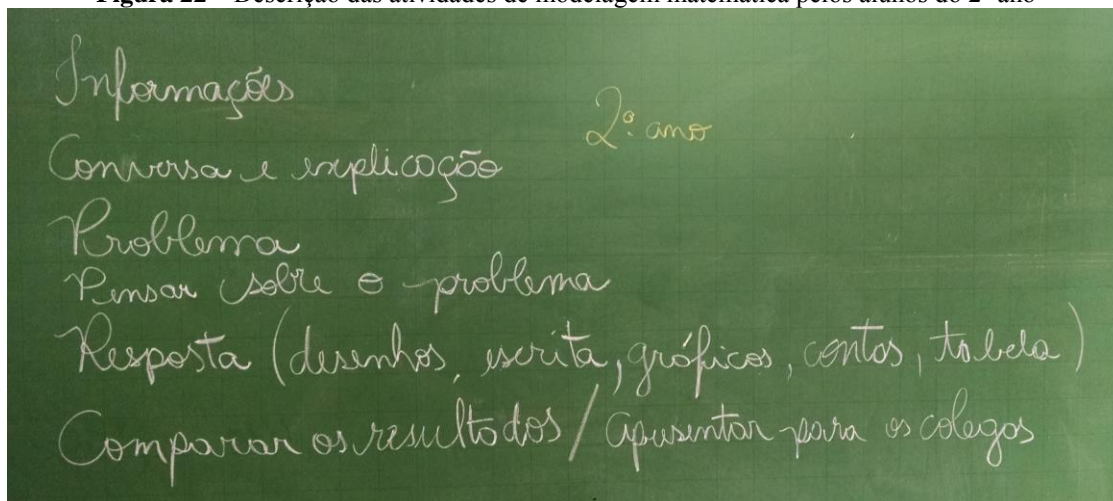 Figura 22 – Descrição das atividades de modelagem matemática pelos alunos do 2º ano
Informações
2º ano
Conversa e explicação
Problema
Pensar sobre o problema
Resposta (desenhos, escrita, gráficos, contas, tabela)
Comparar os resultados / apresentar para os colegas